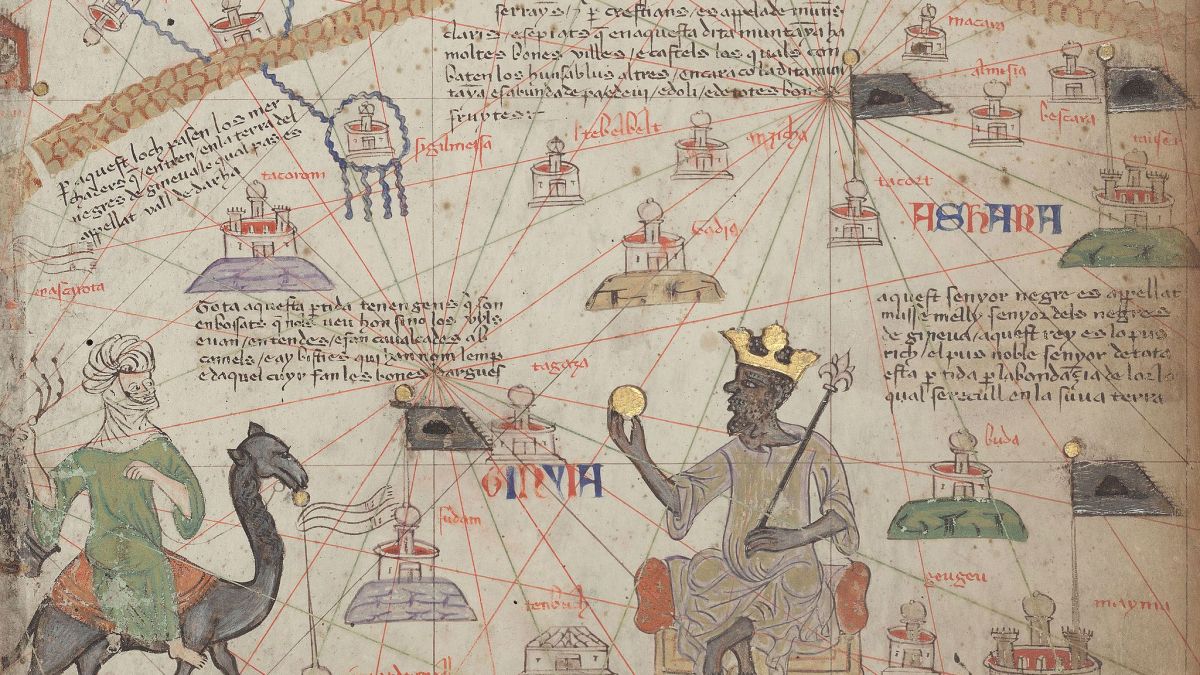 serrayns / e per crestians / es apelade muntis
claris e sepiats q en aquesta dita muntaya ha
moltes bones villes / e castels los quals con
baten los huns ab lus altres / encara co la dita mun
taya es abunda de pa e de vi / e d oli / e de totes bones
fruytes :-
macara
almisia
bescara
p aquest loch pasen los mer
chaders q entren / en la terra del
negres de gineva lo qual pas es
appellat vall de darha
sigilmessa
tebelbelt
tacorom
tacort
ASHARA
Tota aquesta ptida tenen gens q son
enbossats q nols veu hom sino los uyls
e van / en tendes / e fan cavalcades ab
camels / e ay bisties qui han nom lemp
e daquel cuyr fan les bones dargues
aquest senyor negre es appellat
musse melly senyor dels negres
de gineva / aquest rey es lo pus
rich / el pus noble senyor de tota
esta ptida p l abondansia de l or lo
qual se recull en la sua terra
tagaza
GINYIA
buda
sudam
tenbuch
geugeu
mayma